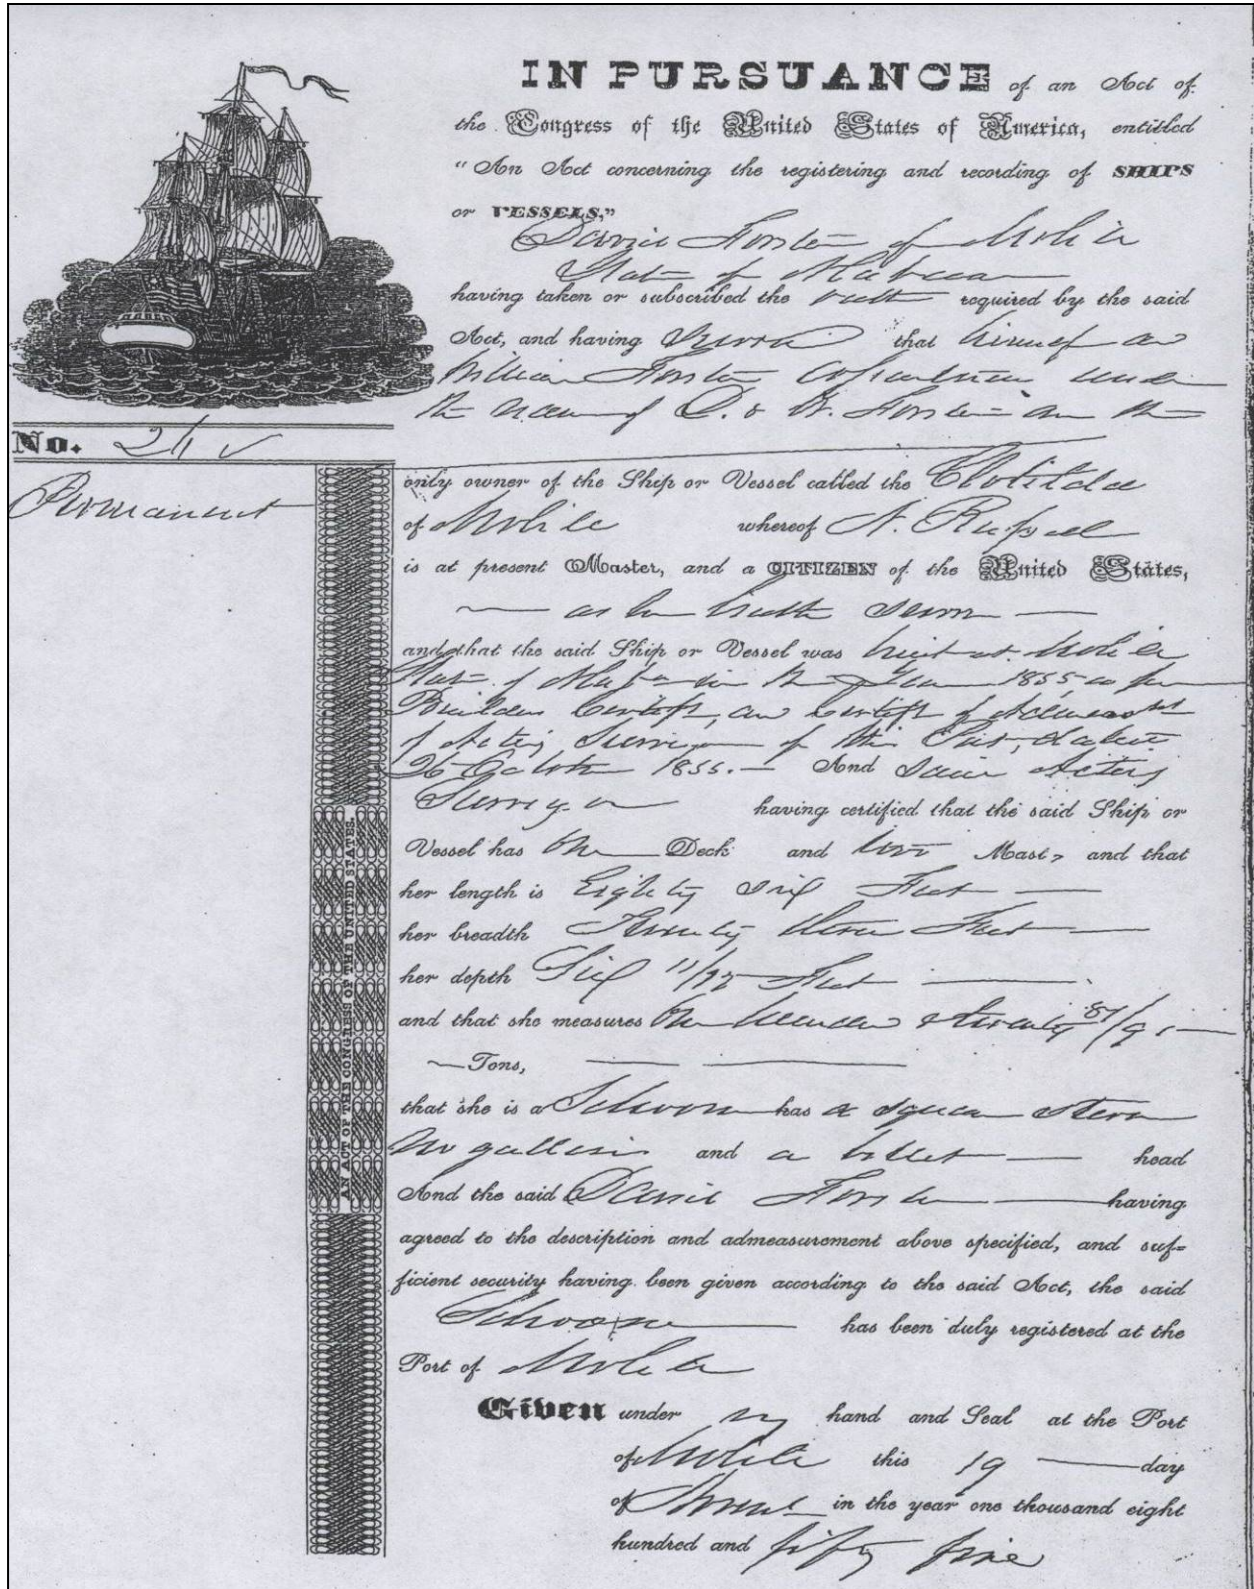 IN PURSUANCE of an Act of
the Congress of the United States of America, entitled
"An Act concerning the registering and recording of SHIPS
or VESSELS,"
of Mobile
State of
having taken or subscribed the oath required by the said
Act, and having sworn that himself and
William under
the name of D. & W. are the
No.
Permanent
only owner of the Ship or Vessel called the Clotilda
of Mobile whereof A. Russell
is at present Master, and a CITIZEN of the United States,
as he hath sworn
and that the said Ship or Vessel was built at Mobile
State of in the year 1855 as per
Builders Certift. and Certift. of
of Acting Surveyor of this Port, dated
1855. And said Acting
Surveyor having certified that the said Ship or
Vessel has One Deck and two Mast, and that
her length is Eighty six Feet
her breadth Twenty three Feet
her depth Six 11/12 Feet
and that she measures One hundred & twenty
Tons,
that she is a Schooner has a square stern
no galleries and a billet head
And the said having
agreed to the description and admeasurement above specified, and suf=
ficient security having been given according to the said Act, the said
Schooner has been duly registered at the
Port of Mobile
Given under my hand and Seal at the Port
of Mobile this 19 day
of in the year one thousand eight
hundred and fifty five
AN ACT OF THE CONGRESS OF THE UNITED STATES.